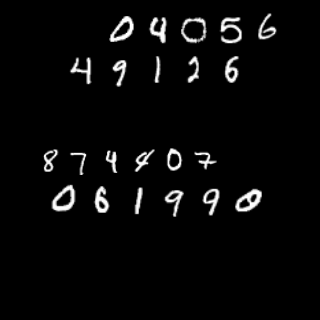 04056
49126
874407
061990